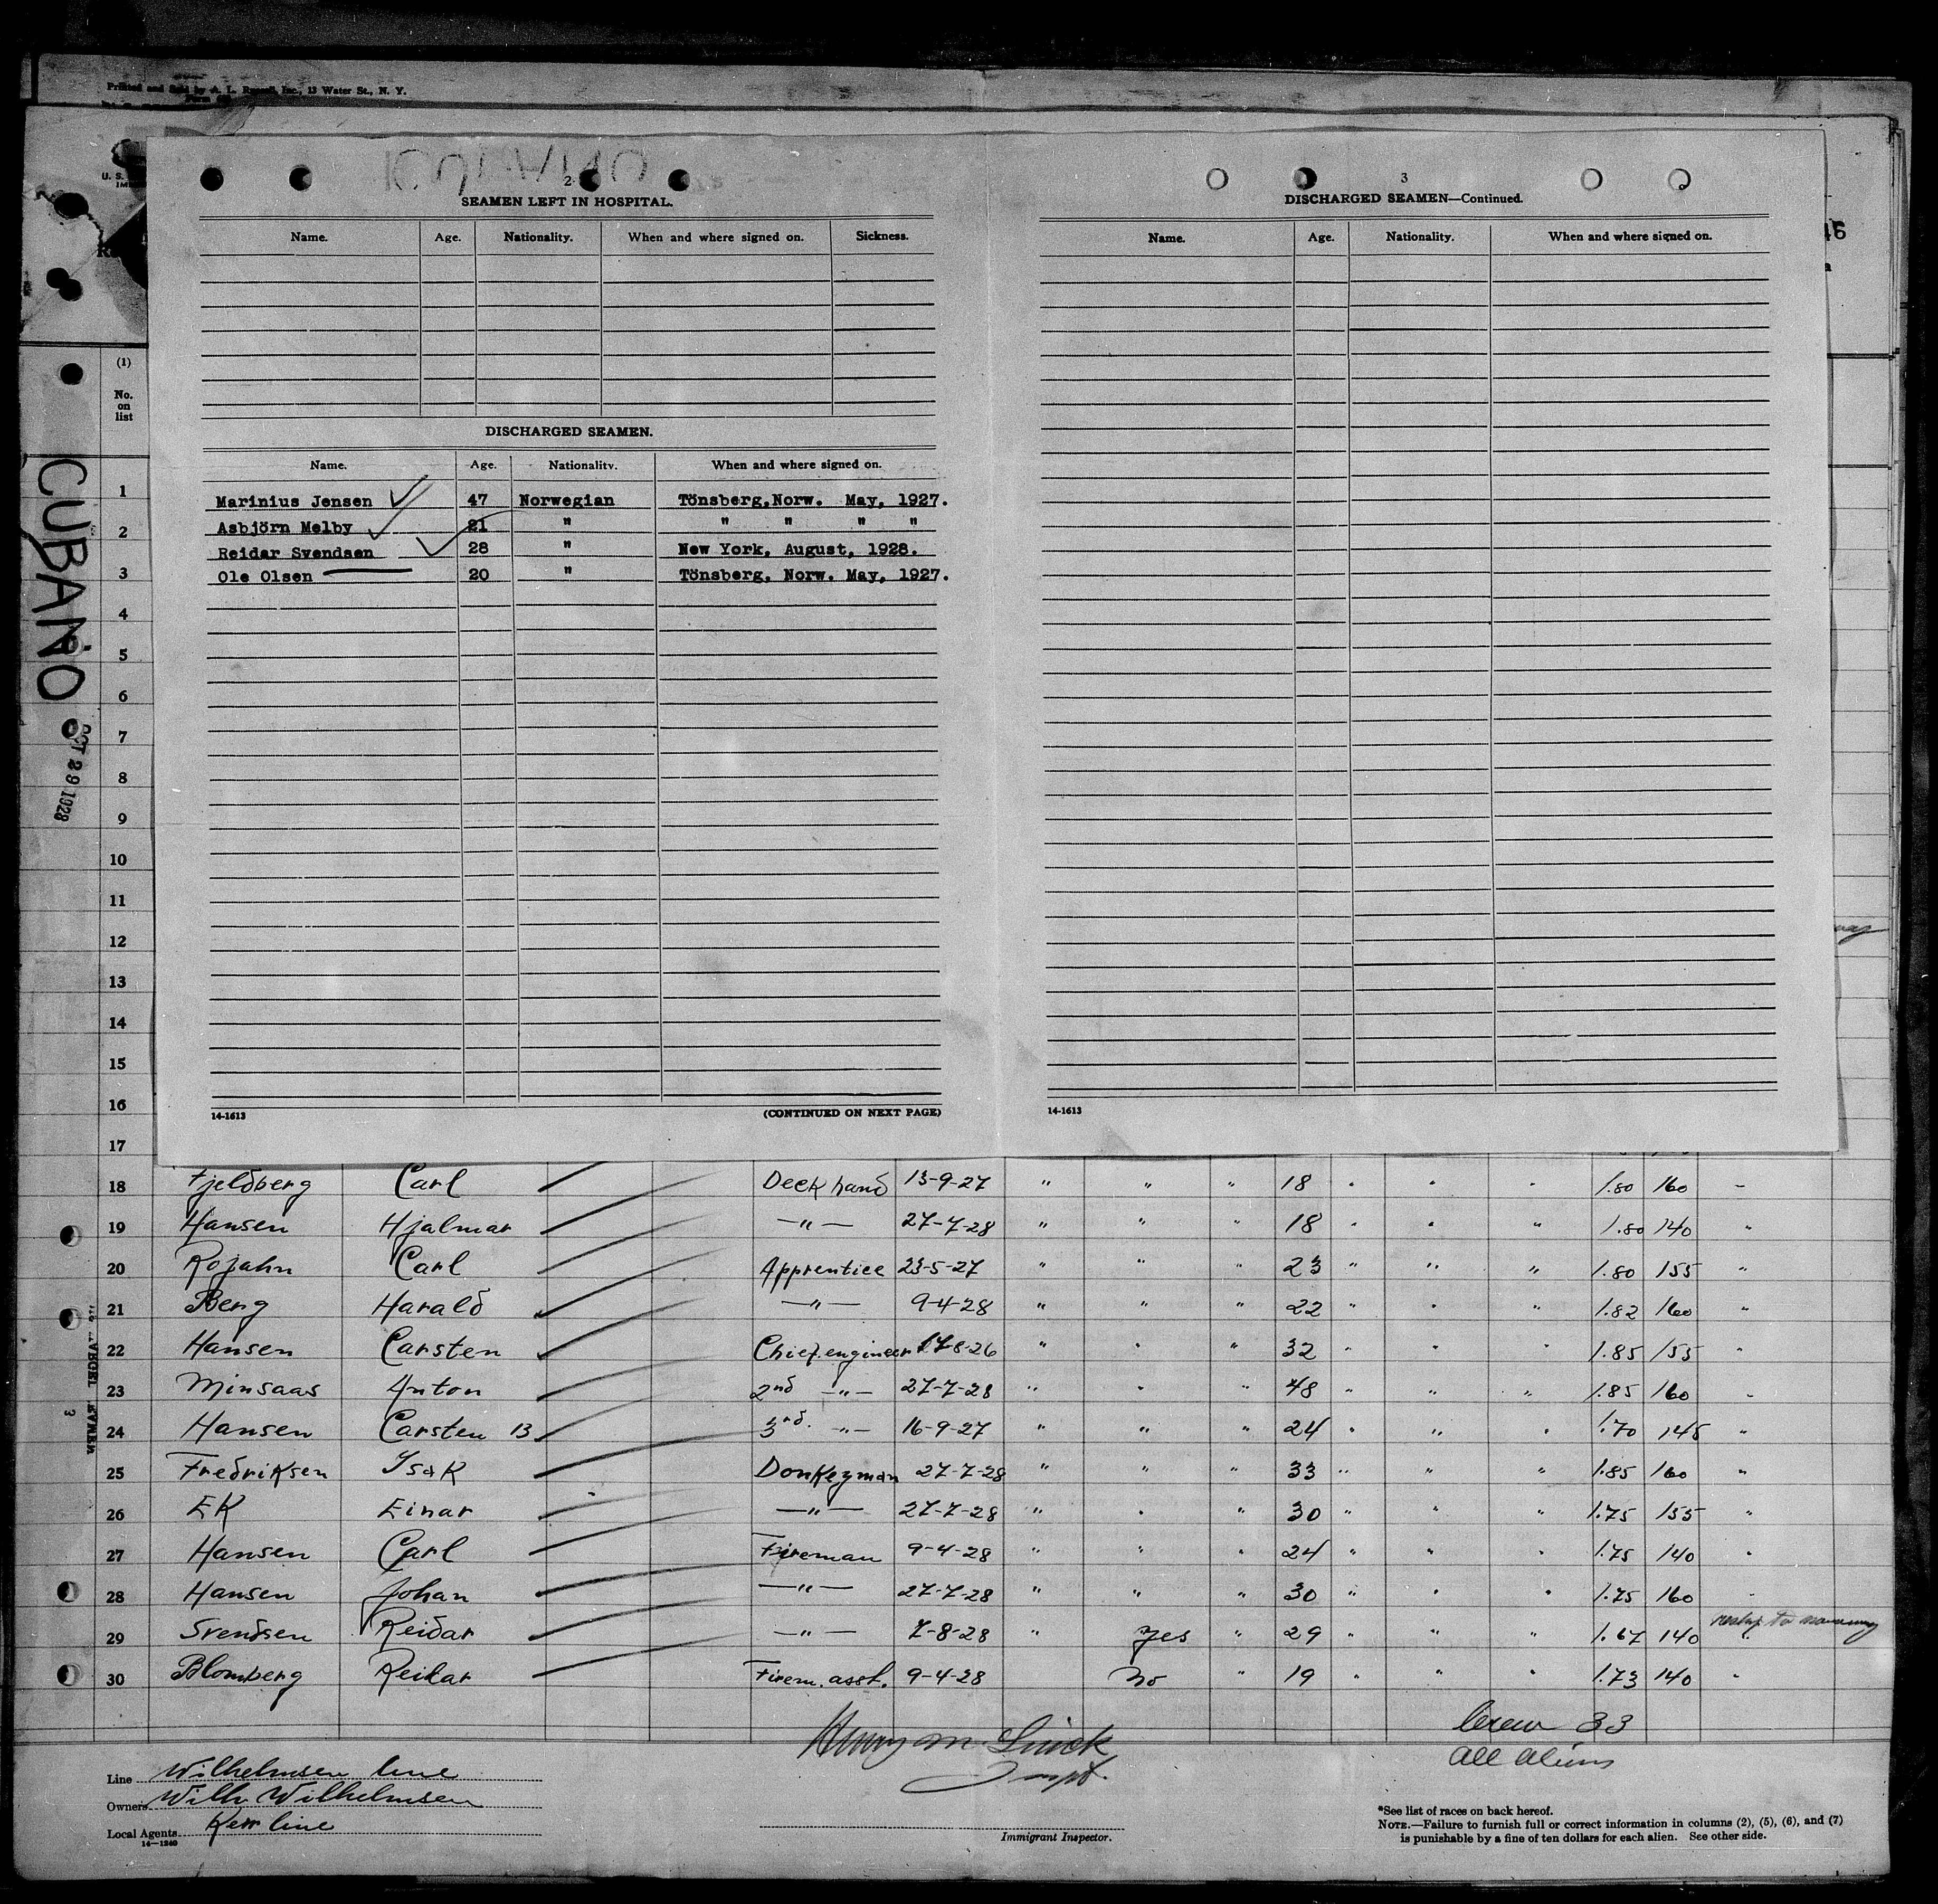 Printed and Sold by A. L. Russell, Inc., 13 Water St., N. Y.
U. S.
46
2
SEAMEN LEFT IN HOSPITAL.
Name. Age. Nationality. When and where signed on. Sickness.
DISCHARGED SEAMEN.
Name. Age. Nationality. When and where signed on.
Marinius Jensen 47 Norwegian Tönsberg,Norw. May, 1927.
Asbjörn Melby 21 " " " " "
Reidar Svendsen 28 " New York, August, 1928.
Ole Olsen 20 " Tönsberg, Norw. May, 1927.
14-1613 (CONTINUED ON NEXT PAGE)
3
DISCHARGED SEAMEN—Continued.
Name. Age. Nationality. When and where signed on.
14-1613
CUBANO
OCT 29 1928
(1)
No.
on
list
1
2
3
4
5
6
7
8
9
10
11
12
13
14
15
16
17
18 Fjeldberg Carl Deck hand 13-9-27 " " " 18 " " " 1.80 160 "
19 Hansen Hjalmar —"— 27-7-28 " " " 18 " " " 1.80 140 "
20 Rojahn Carl Apprentice 23-5-27 " " " 23 " " " 1.80 155 "
21 Berg Harald —"— 9-4-28 " " " 22 " " " 1.82 160 "
22 Hansen Carsten Chief engineer 17-8-26 " " " 32 " " " 1.85 155 "
23 Minsaas Anton 2nd —"— 27-7-28 " " " 48 " " " 1.85 160 "
24 Hansen Carsten 13 3rd —"— 16-9-27 " " " 24 " " " 1.70 145 "
25 Fredriksen Isak Donkeyman 27-7-28 " " " 33 " " " 1.85 160 "
26 Ek Einar —"— 27-7-28 " " " 30 " " " 1.75 155 "
27 Hansen Carl Fireman 9-4-28 " " " 24 " " " 1.75 140 "
28 Hansen Johan —"— 27-7-28 " " " 30 " " " 1.75 160 "
29 Svendsen Reidar —"— 7-8-28 " yes " 29 " " " 1.67 140 "
30 Blomberg Reidar Firem. asst. 9-4-28 No " 19 " " " 1.73 140 "
Crew 33
All aliens
Line Wilhelmsen line
Owners Wilh Wilhelmsen
Local Agents Kerr line
14—1240
Immigrant Inspector.
*See list of races on back hereof.
NOTE.—Failure to furnish full or correct information in columns (2), (5), (6), and (7)
is punishable by a fine of ten dollars for each alien. See other side.